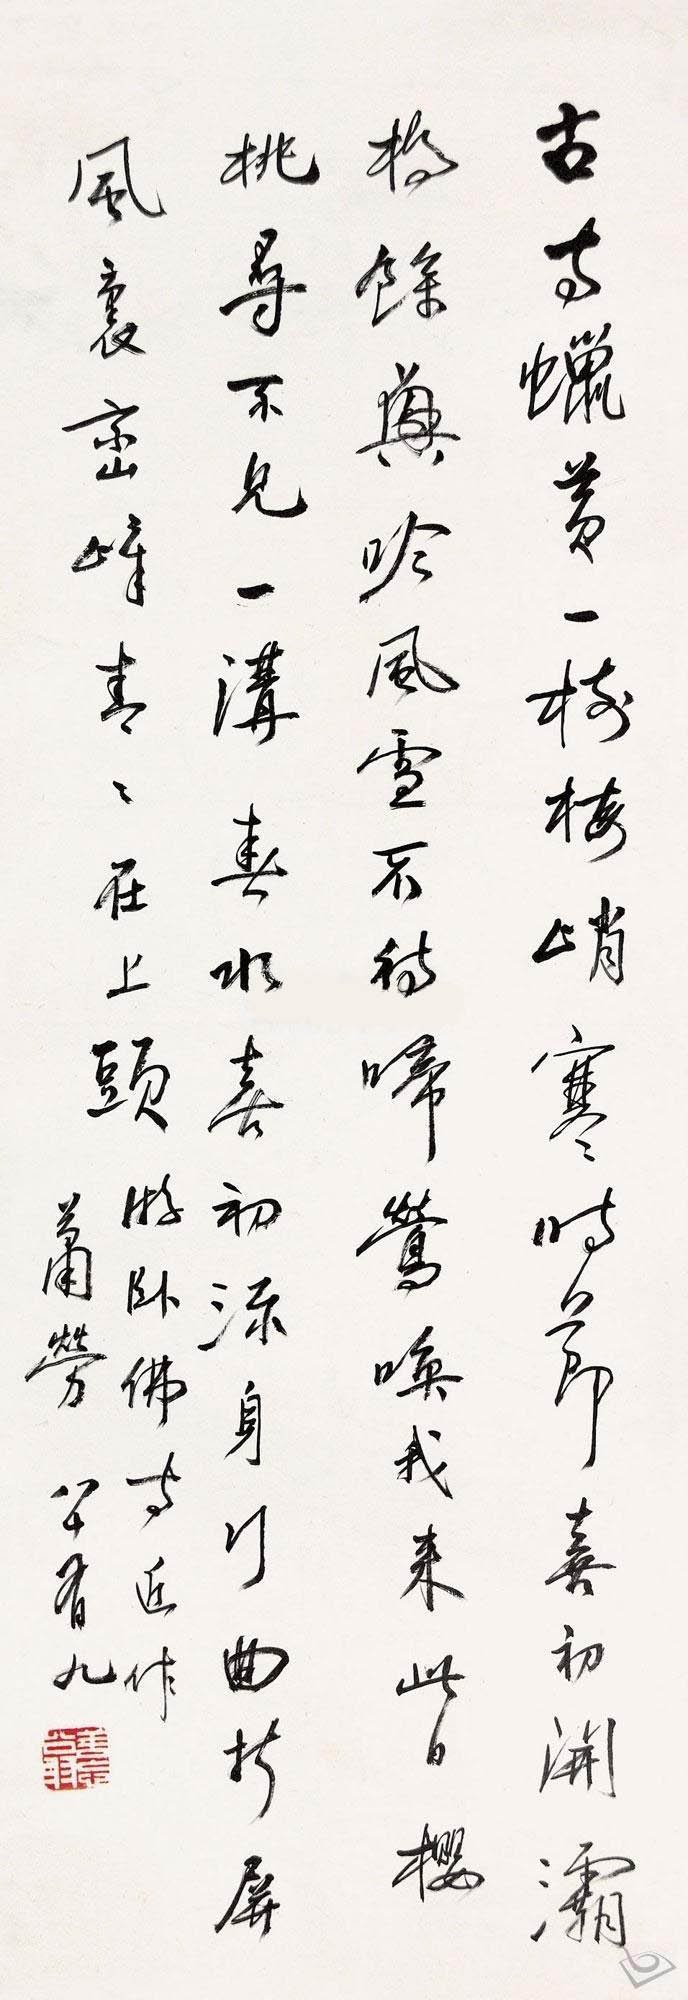 古寺蠟黄一樹梅峭寒時節喜初開灞
橋餘興吟風雪不待啼鶯喚我来此日櫻
桃尋不見一溝春水喜初流身行曲折屏
風裏密峰青〻在上頭
游卧佛寺近作
蕭勞 八十有九